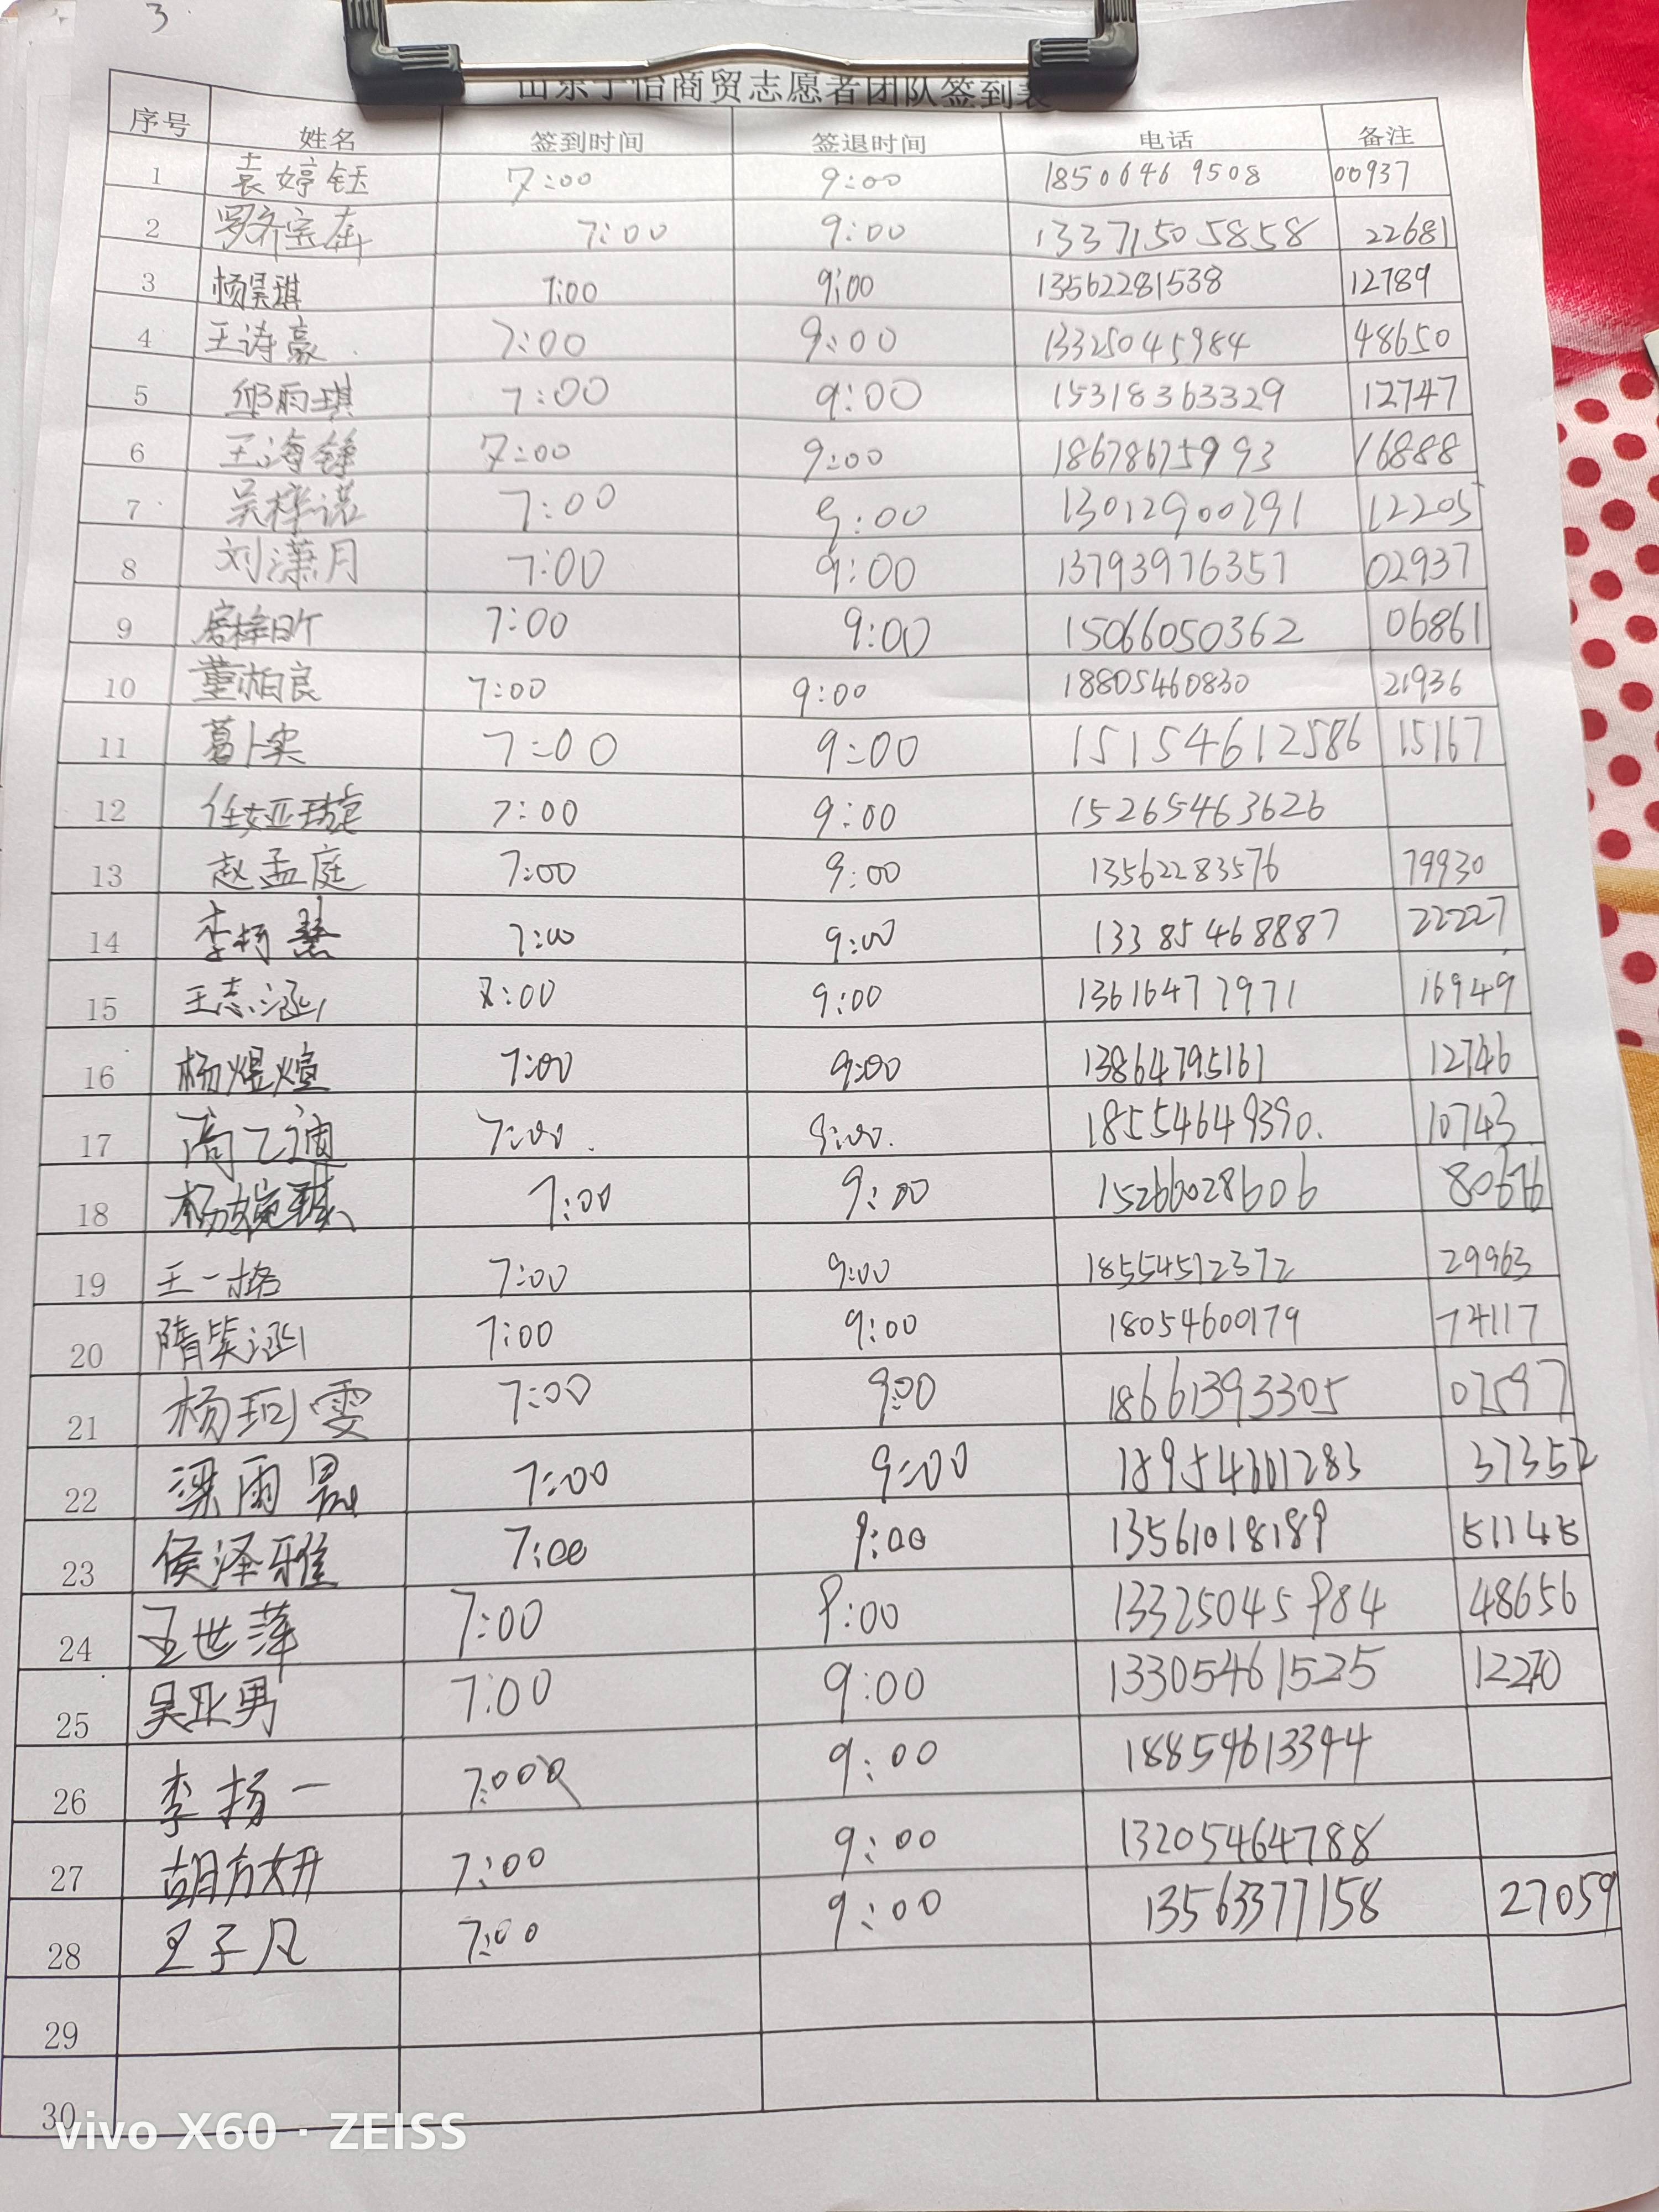 3
山东于怡商贸志愿者团队签到表
序号 姓名 签到时间 签退时间 电话 备注
1 袁婷钰 7:00 9:00 18506469508 00937
2 7:00 9:00 13371505858 22681
3 杨昊琪 7:00 9:00 13562281538 12789
4 王涛豪 7:00 9:00 13325045984 48650
5 邱雨琪 7:00 9:00 15318363329 12747
6 王海锋 7:00 9:00 18678675993 16888
7 吴梓诺 7:00 9:00 13012900291 12205
8 刘潇月 7:00 9:00 13793976357 02937
9 房梓昕 7:00 9:00 15066050362 06861
10 董柏良 7:00 9:00 18805460830 21936
11 葛卜实 7:00 9:00 15154612586 15167
12 任娅璇 7:00 9:00 15265463626
13 赵孟庭 7:00 9:00 13562283576 79930
14 李杨慧 7:00 9:00 13385468887 22227
15 王志涵 7:00 9:00 13616477971 16949
16 杨煜煊 7:00 9:00 13864795161 12746
17 商乙迪 7:00 9:00 18554649390. 10743
18 杨婉琪 7:00 9:00 15266028606 80676
19 王一格 7:00 9:00 18554512372 29963
20 隋笑涵 7:00 9:00 18054600179 74117
21 杨珂雯 7:00 9:00 18661393305 07597
22 梁雨晨 7:00 9:00 18954601283 37352
23 侯泽雅 7:00 9:00 13561018189 51145
24 王世萍 7:00 9:00 13325045984 48656
25 吴亚男 7:00 9:00 13305461525 12270
26 李扬一 7:00 9:00 18854613394
27 胡方妍 7:00 9:00 13205464788
28 王子凡 7:00 9:00 13563377158 27059
29
30
vivo X60 · ZEISS